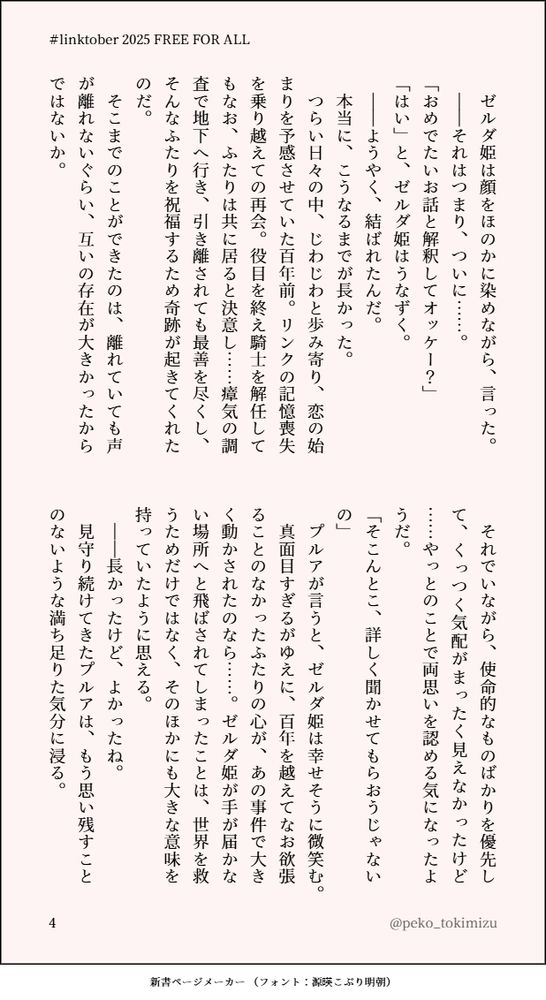 #linktober 2025 FREE FOR ALL
ゼルダ姫は顔をほのかに染めながら、言った。
――それはつまり、ついに……。
「おめでたいお話と解釈してオッケー？」
「はい」と、ゼルダ姫はうなずく。
――ようやく、結ばれたんだ。
本当に、こうなるまでが長かった。
つらい日々の中、じわじわと歩み寄り、恋の始
まりを予感させていた百年前。リンクの記憶喪失
を乗り越えての再会。役目を終え騎士を解任して
もなお、ふたりは共に居ると決意し……瘴気の調
査で地下へ行き、引き離されても最善を尽くし、
そんなふたりを祝福するため奇跡が起きてくれた
のだ。
そこまでのことができたのは、離れていても声
が離れないぐらい、互いの存在が大きかったから
ではないか。
それでいながら、使命的なものばかりを優先し
て、くっつく気配がまったく見えなかったけど
……やっとのことで両思いを認める気になったよ
うだ。
「そこんとこ、詳しく聞かせてもらおうじゃない
の」
プルアが言うと、ゼルダ姫は幸せそうに微笑む。
真面目すぎるがゆえに、百年を越えてなお欲張
ることのなかったふたりの心が、あの事件で大き
く動かされたのなら……。ゼルダ姫が手が届かな
い場所へと飛ばされてしまったことは、世界を救
うためだけではなく、そのほかにも大きな意味を
持っていたように思える。
――長かったけど、よかったね。
見守り続けてきたプルアは、もう思い残すこと
のないような満ち足りた気分に浸る。
4
@peko_tokimizu
新書ページメーカー （フォント：源暎こぶり明朝）